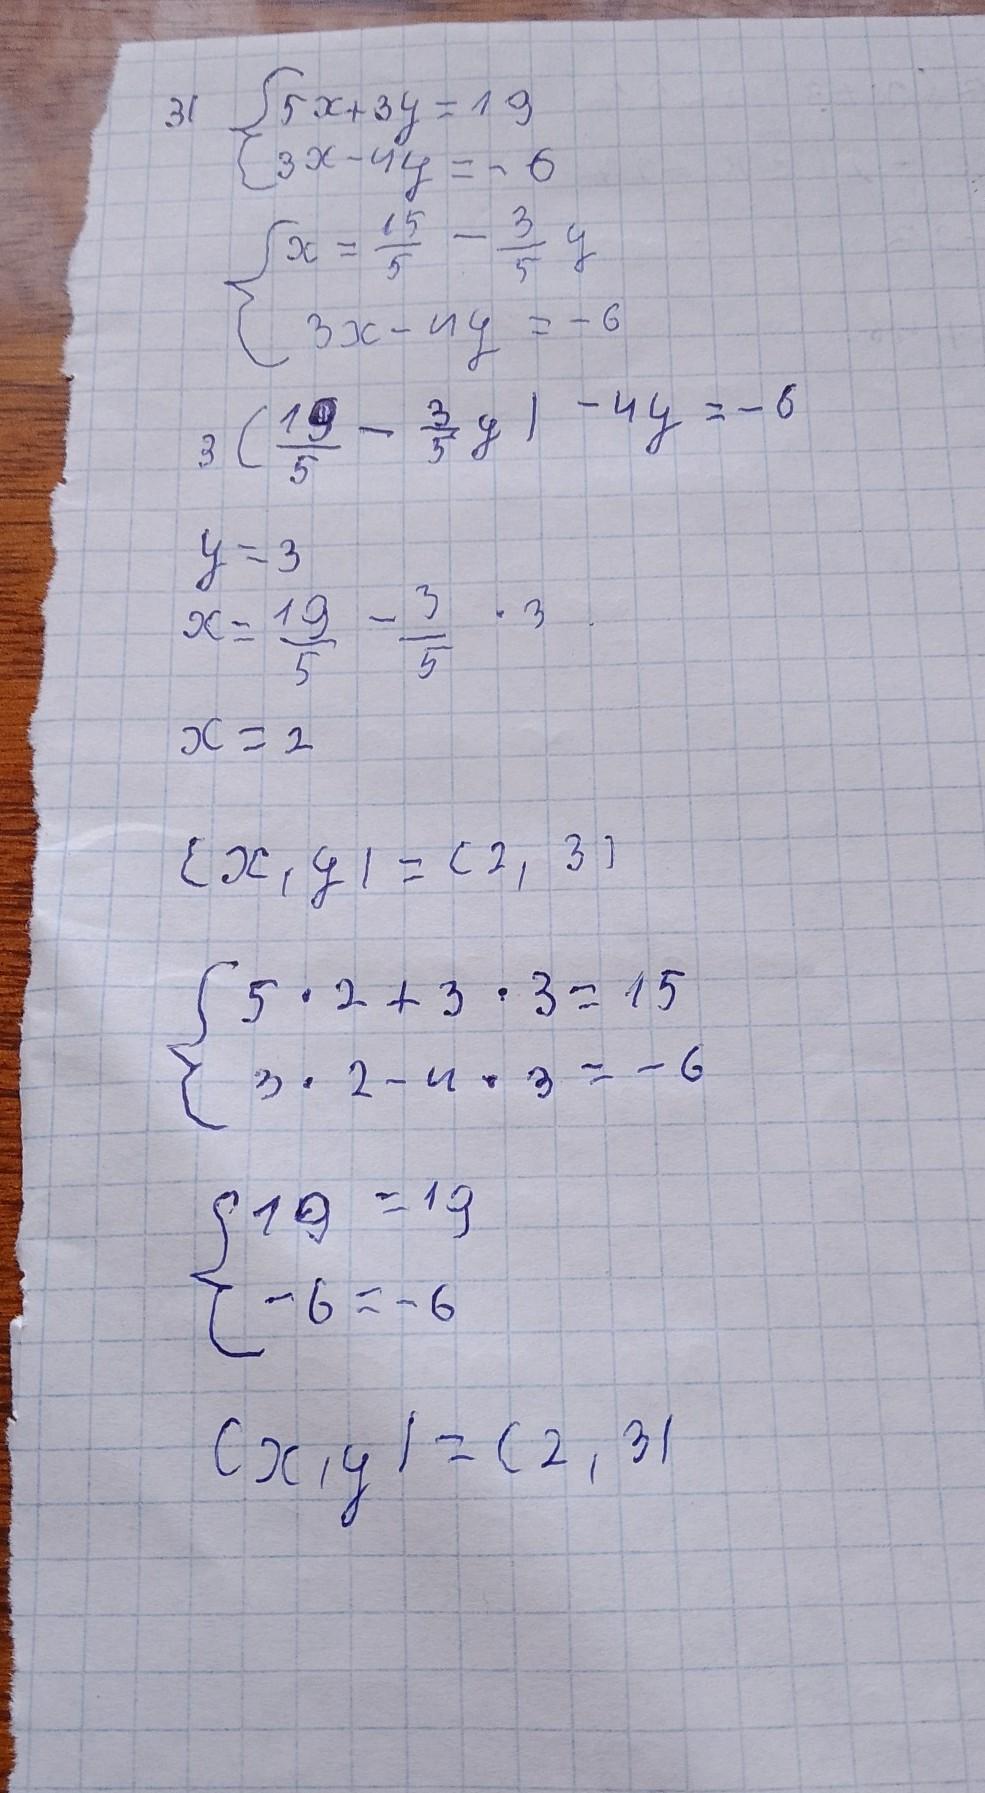 3) { 5x+3y=19
{ 3x-4y=-6
{ x = 15/5 - 3/5 y
{ 3x-4y=-6
3 ( 19/5 - 3/5 y ) - 4y = -6
y=3
x= 19/5 - 3/5 · 3
x=2
(x,y)=(2,3)
{ 5·2+3·3=15
{ 3·2-4·3=-6
{ 19=19
{ -6=-6
(x,y)=(2,3)